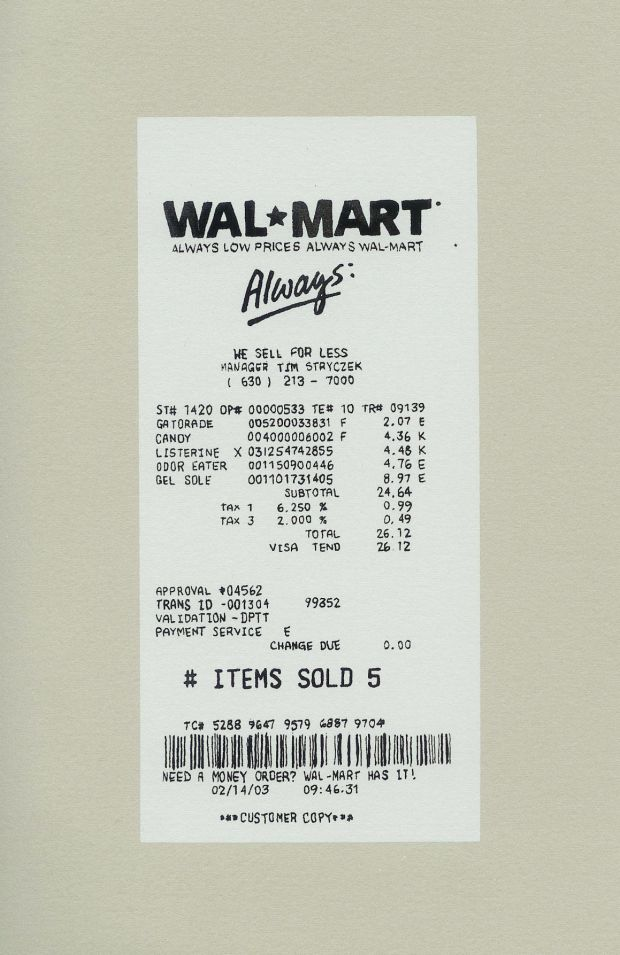 WAL★MART
ALWAYS LOW PRICES ALWAYS WAL-MART
Always:
WE SELL FOR LESS
MANAGER TIM STRYCZEK
( 630 ) 213 - 7000
ST# 1420 OP# 00000533 TE# 10 TR# 09139
GATORADE 005200033831 F 2.07 E
CANDY 004000006002 F 4.36 K
LISTERINE X 031254742855 4.48 K
ODOR EATER 001150900446 4.76 E
GEL SOLE 001101731405 8.97 E
SUBTOTAL 24.64
TAX 1 6.250 % 0.99
TAX 3 2.000 % 0.49
TOTAL 26.12
VISA TEND 26.12
APPROVAL #04562
TRANS ID -001304 99352
VALIDATION - DPTT
PAYMENT SERVICE E
CHANGE DUE 0.00
# ITEMS SOLD 5
TC# 5288 9647 9579 6887 9704
NEED A MONEY ORDER? WAL-MART HAS IT!
02/14/03 09:46.31
***CUSTOMER COPY***